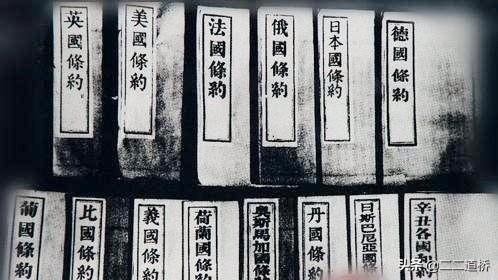 英國條約
美國條約
法國條約
俄國條約
日本國條約
德國條約
葡國條約
比國條約
義國條約
荷蘭國條約
奧斯馬加國條約
丹國條約
日斯巴尼亞國
辛丑各國
头条 @二二道标